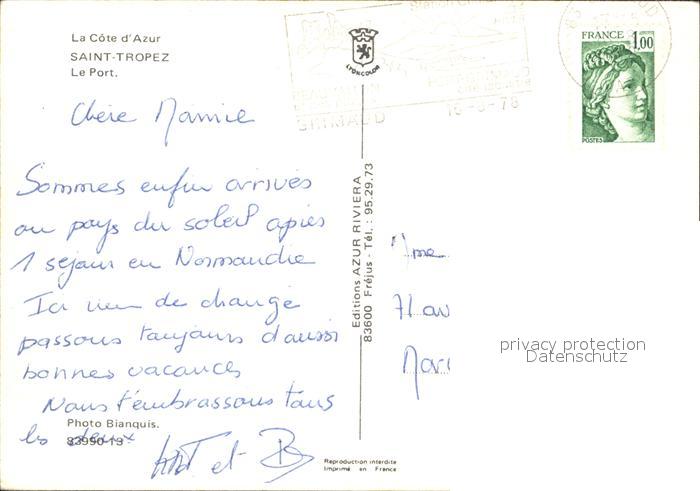 La Côte d'Azur
SAINT-TROPEZ
Le Port.
LYONCOLOR
GRIMAUD
16-8-78
FRANCE 1,00
POSTES
Chère Mamie
Sommes enfin arrivés
au pays du soleil après
1 séjour en Normandie
Ici rien de changé
passons toujours d'aussi
bonnes vacances
Nous t'embrassons tous
les deux
et B
Photo Bianquis.
83990-19
Editions AZUR RIVIERA
83600 Fréjus - Tél. : 95.29.73
Reproduction interdite
Imprimé en France
Mme
privacy protection
Datenschutz